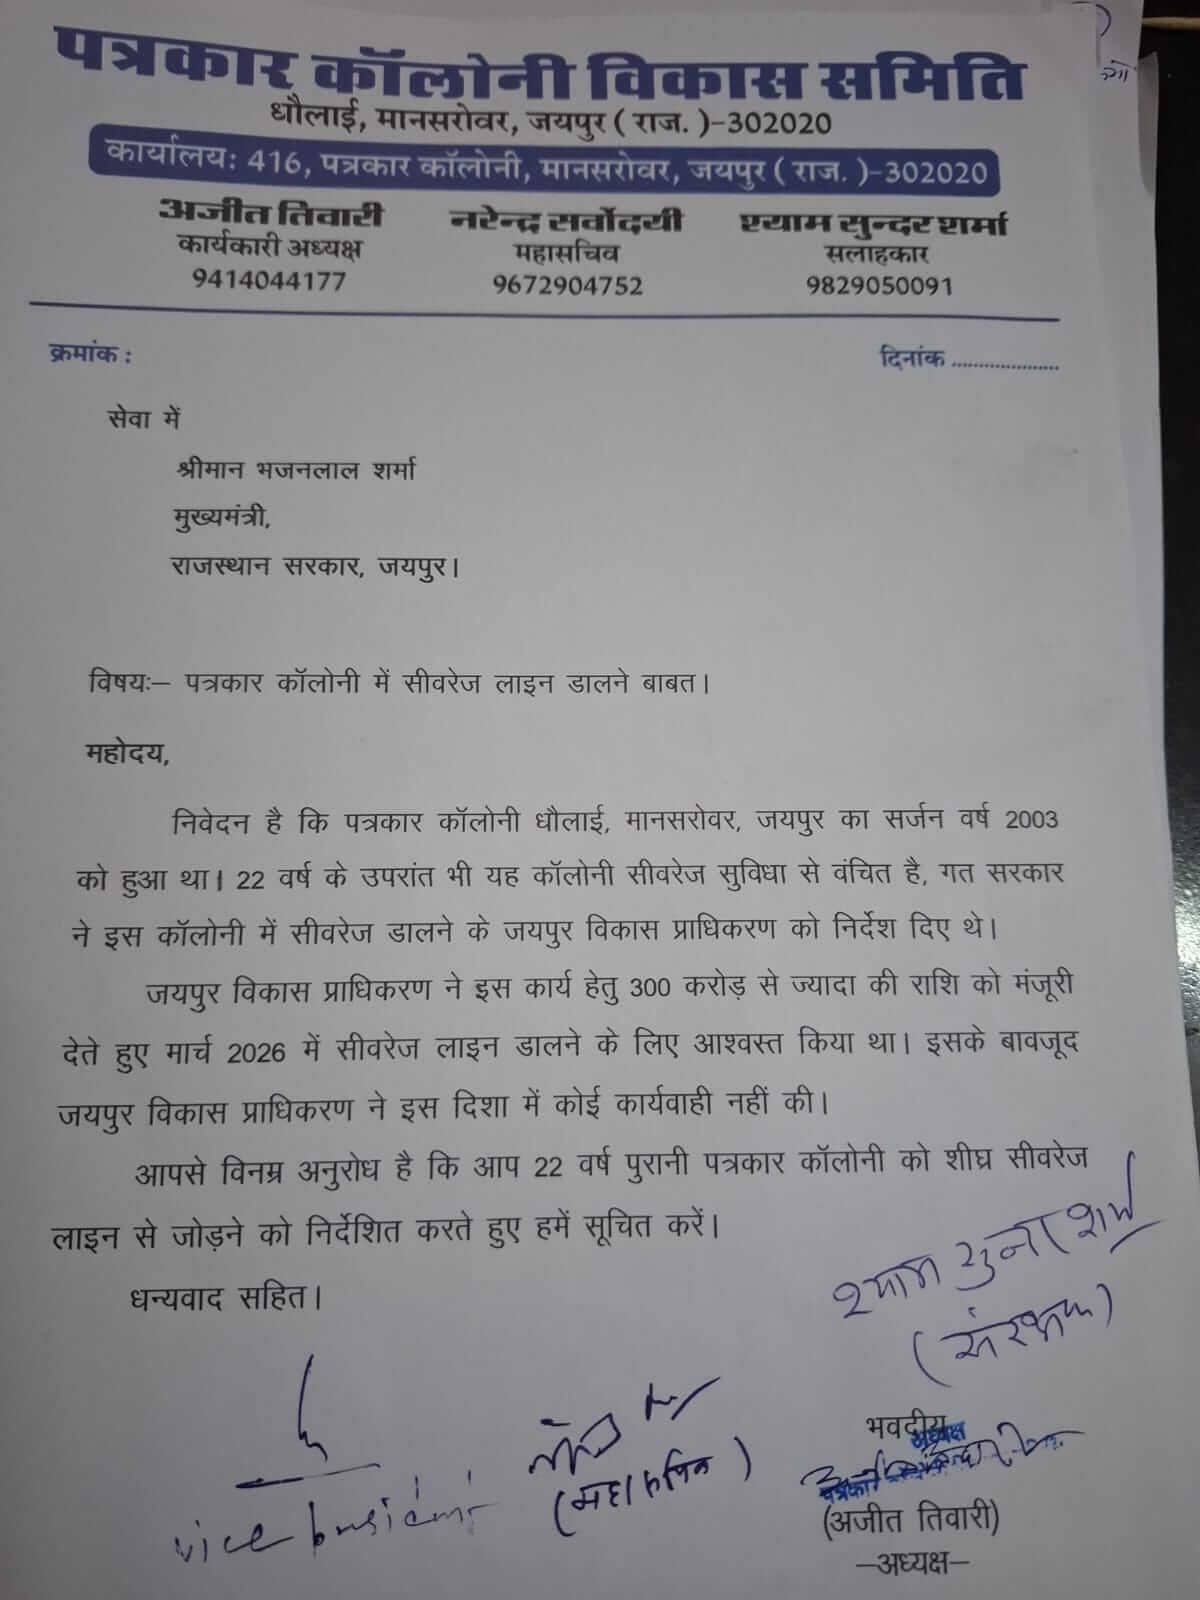 पत्रकार कॉलोनी विकास समिति
धौलाई, मानसरोवर, जयपुर ( राज. )-302020
कार्यालय: 416, पत्रकार कॉलोनी, मानसरोवर, जयपुर ( राज. )-302020
अजीत तिवारी नरेन्द्र सर्वोदयी श्याम सुन्दर शर्मा
कार्यकारी अध्यक्ष महासचिव सलाहकार
9414044177 9672904752 9829050091
क्रमांक : दिनांक .....................
सेवा में
श्रीमान भजनलाल शर्मा
मुख्यमंत्री,
राजस्थान सरकार, जयपुर।
विषयः– पत्रकार कॉलोनी में सीवरेज लाइन डालने बाबत।
महोदय,
निवेदन है कि पत्रकार कॉलोनी धौलाई, मानसरोवर, जयपुर का सर्जन वर्ष 2003
को हुआ था। 22 वर्ष के उपरांत भी यह कॉलोनी सीवरेज सुविधा से वंचित है, गत सरकार
ने इस कॉलोनी में सीवरेज डालने के जयपुर विकास प्राधिकरण को निर्देश दिए थे।
जयपुर विकास प्राधिकरण ने इस कार्य हेतु 300 करोड़ से ज्यादा की राशि को मंजूरी
देते हुए मार्च 2026 में सीवरेज लाइन डालने के लिए आश्वस्त किया था। इसके बावजूद
जयपुर विकास प्राधिकरण ने इस दिशा में कोई कार्यवाही नहीं की।
आपसे विनम्र अनुरोध है कि आप 22 वर्ष पुरानी पत्रकार कॉलोनी को शीघ्र सीवरेज
लाइन से जोड़ने को निर्देशित करते हुए हमें सूचित करें।
धन्यवाद सहित।
श्याम सुन्दर शर्मा
(संरक्षक)
भवदीय
अध्यक्ष
पत्रकार
vice president
(महासचिव)
(अजीत तिवारी)
–अध्यक्ष–